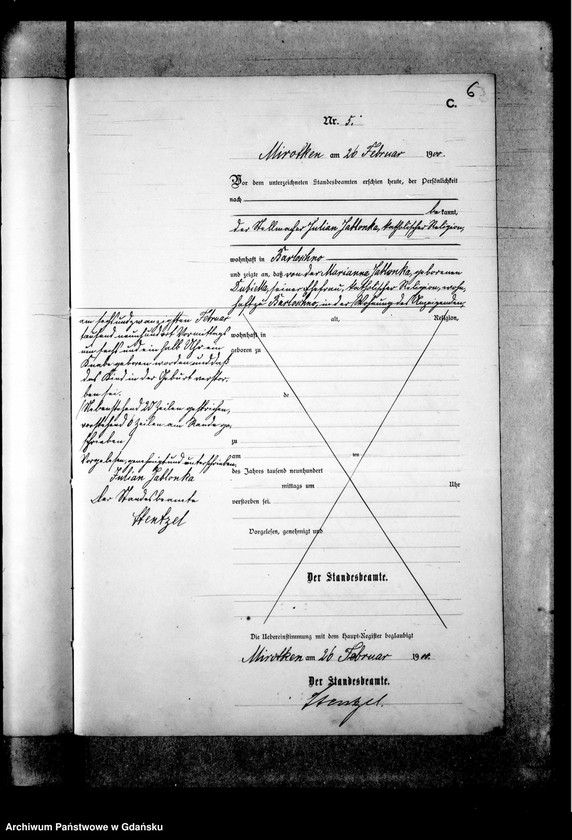 6
C.
Nr. 5.
Mirotken am 26 Februar 1900.
Vor dem unterzeichneten Standesbeamten erschien heute, der Persönlichkeit
nach
bekannt,
der Stellmacher Julian Jablonka, katholischer Religion,
wohnhaft in Bartoschno
und zeigte an, daß von der Marianna Jablonka, geborenen
Kubicka, seiner Ehefrau, katholischer Religion, wohn-
haft zu Bartoschno, in der Wohnung des Anzeigenden,
am sechsundzwanzigsten Februar
tausend neunhundert Vormittags
um sechs und ein halb Uhr ein
Knabe geboren worden und daß
das Kind in der Geburt verstor-
ben sei.
Nebenstehend 22 Zeilen gestrichen,
vorstehend 6 Zeilen am Rande ge-
schrieben
Vorgelesen, genehmigt und unterschrieben,
Julian Jablonka
Der Standesbeamte
Stentzel
alt, Religion,
wohnhaft in
geboren zu
do
zu
am um
des Jahres tausend neunhundert
mittags um Uhr
verstorben sei.
Vorgelesen, genehmigt und
Der Standesbeamte.
Die Uebereinstimmung mit dem Haupt-Register beglaubigt
Mirotken am 26 Februar 1900.
Der Standesbeamte.
Stentzel.
Archiwum Państwowe w Gdańsku